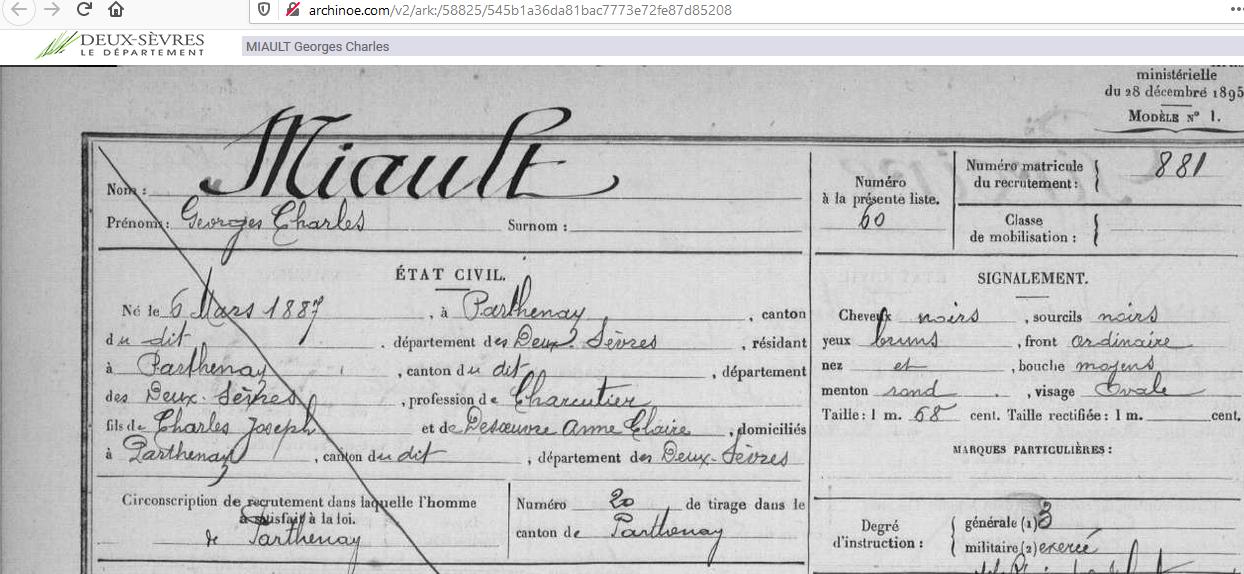 archinoe.com/v2/ark:/58825/545b1a36da81bac7773e72fe87d85208
DEUX-SÈVRES
LE DÉPARTEMENT
MIAULT Georges Charles
ministérielle
du 28 décembre 1895
MODÈLE N° 1.
Nom : Miault
Prénoms : Georges Charles Surnom :
Numéro
à la présente liste.
60
Numéro matricule
du recrutement : 881
Classe
de mobilisation :
ÉTAT CIVIL.
Né le 6 Mars 1887, à Parthenay, canton
du dit. département des Deux-Sèvres, résidant
à Parthenay, canton du dit, département
des Deux-Sèvres, profession de Charcutier
fils de Charles Joseph et de Desœuvre Anne Claire, domiciliés
à Parthenay, canton du dit, département des Deux-Sèvres
SIGNALEMENT.
Cheveux noirs, sourcils noirs
yeux bruns, front ordinaire
nez et, bouche moyens
menton rond, visage Ovale
Taille : 1 m. 68 cent. Taille rectifiée : 1 m. cent.
MARQUES PARTICULIÈRES :
Circonscription de recrutement dans laquelle l'homme
a satisfait à la loi.
de Parthenay
Numéro 20 de tirage dans le
canton de Parthenay
Degré
d'instruction :
générale (1) 3
militaire (2) exercé